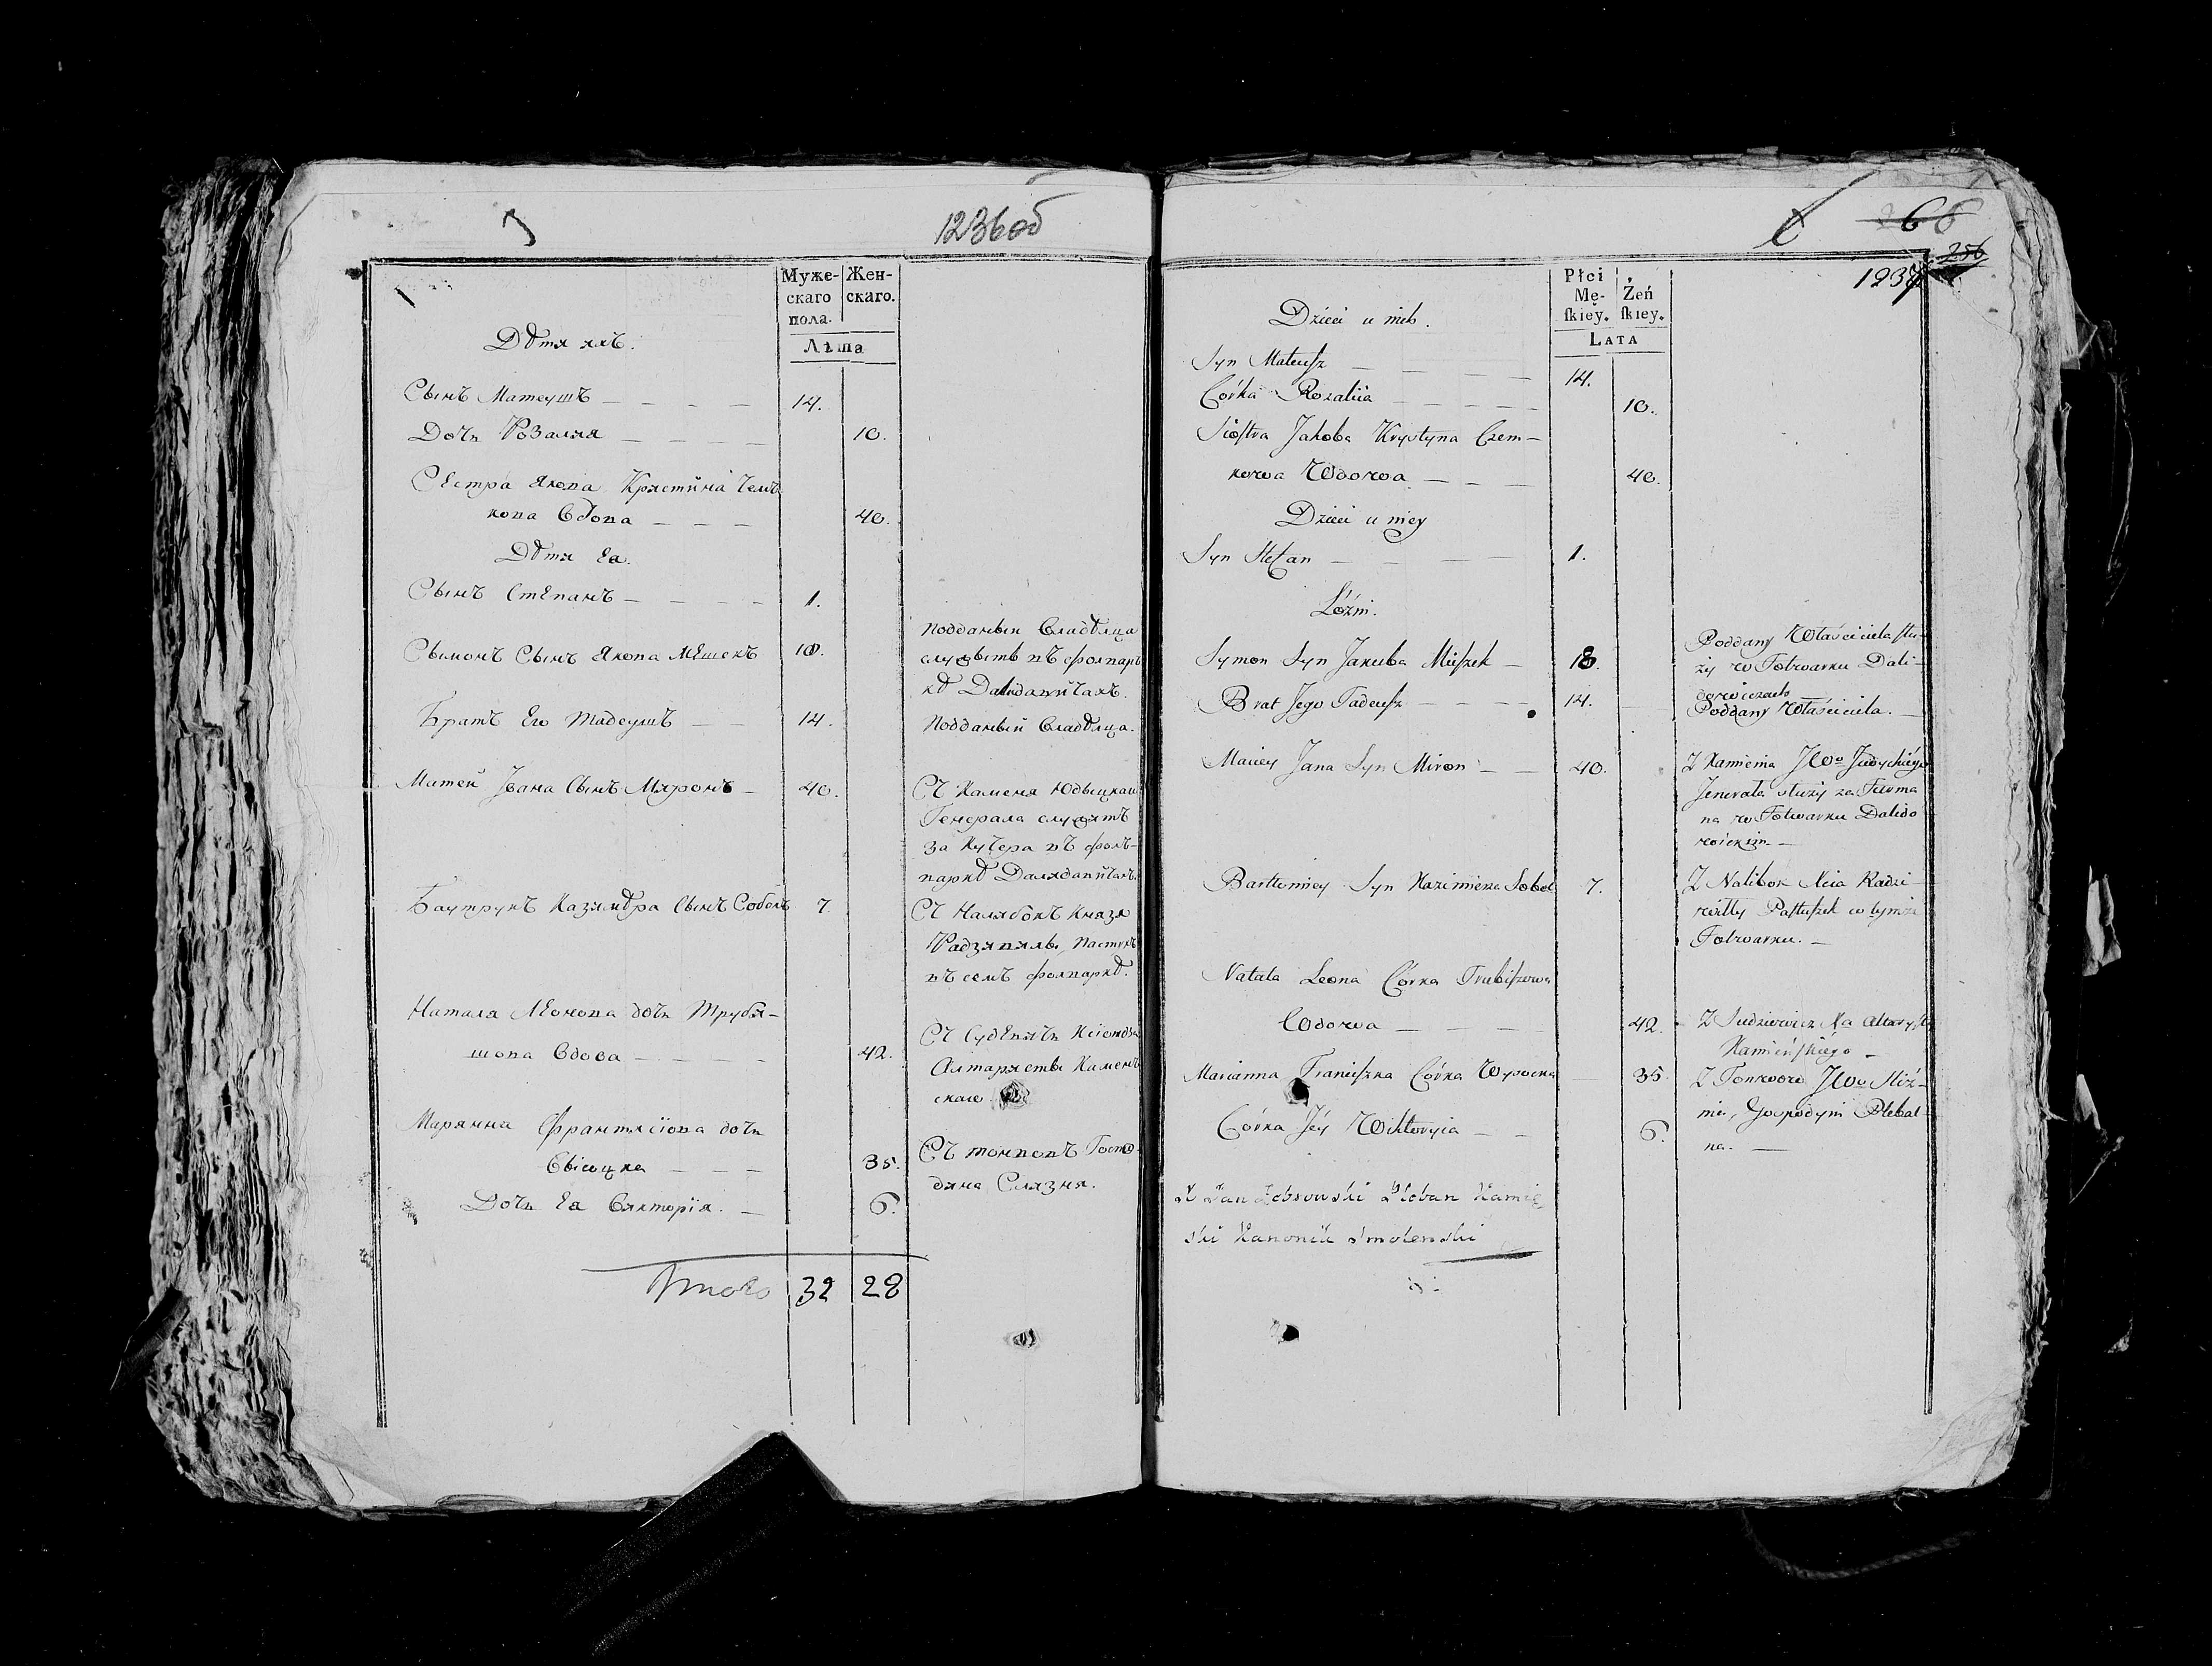 1236об
Муже-
скаго
пола.
Жен-
скаго.
Лѣта
Дѣти ихъ.
Сынъ Матеушъ — — — — 14.
Дочь Розалия — — — — 10.
Сестра Якова Кристина Чем-
кова Вдова — — — 40.
Дѣти Ея.
Сынъ Степанъ — — — — 1.
Сымонъ Сынъ Якова Мешекъ 18.
Подданый Владѣлца
служыть въ фолвар-
кѣ Далидавичахъ.
Братъ Его Тадеушъ — — 14.
Подданый Владѣлца.
Матей Ивана Сынъ Миронъ — 40.
Съ Каменя Юдыцкаго
Генерала служитъ
за Кучера въ фоль-
варкѣ Далидавичахъ
Баутрукъ Казимѣра Сынъ Соболь 7.
Съ Налибокъ Князя
Радзивилы, Пастухъ
въ семъ фолваркѣ.
Натала Леонова дочь Труби-
шова Вдова — — — — 42.
Съ Ксiондза
Алтарысты Камен
скаго
Марянна Францисiова дочь
Высоцка — — — 35.
Съ Господина Слизня.
Дочь Ея Викторiя. — 6.
Итого 32 28
66
256
1237
Płci
Mę-
ſkiey.
Żeń
ſkiey.
Lata
Dzieci u nich.
Syn Mateuſz — — — — 14.
Córka Rozaliia — — — — — 10.
Sioſtra Jakóba Krystyna Czem-
kowa Wdowa — — — 40.
Dzieci u niey
Syn Stefan — — — 1.
Lóźni.
Symon Syn Jakuba Miſzek — 18.
Poddany Właściciela słu-
ży w Folwarku Dali-
dowiczach
Brat Jego Tadeuſz — — — — 14.
Poddany Właściciela. —
Maciey Jana Syn Miron — — 40.
Z Kamienia JWo Judyckiego
Jenerała służy za Furma
na w Folwarku Dalido
wickim —
Bartłomiey Syn Kazimierza Sobol 7.
Z Nalibok Xcia Radzi
wiłły Paſtuſzek w tymże
Folwarku. —
Natala Leona Córka Trubiſzowa
Wdowa — — — — 42.
Z Sudziewicz Xa Altaryſty
Kamieńſkiego —
Marianna Franciſzka Córka Wysocka — 35
Z JWo Sliź-
nia, Gospodyni Plebal-
na. —
Córka Jéy Wiktoryia — — 6.
X Jan Pleban Kamie
ski Kanonik Smolenski